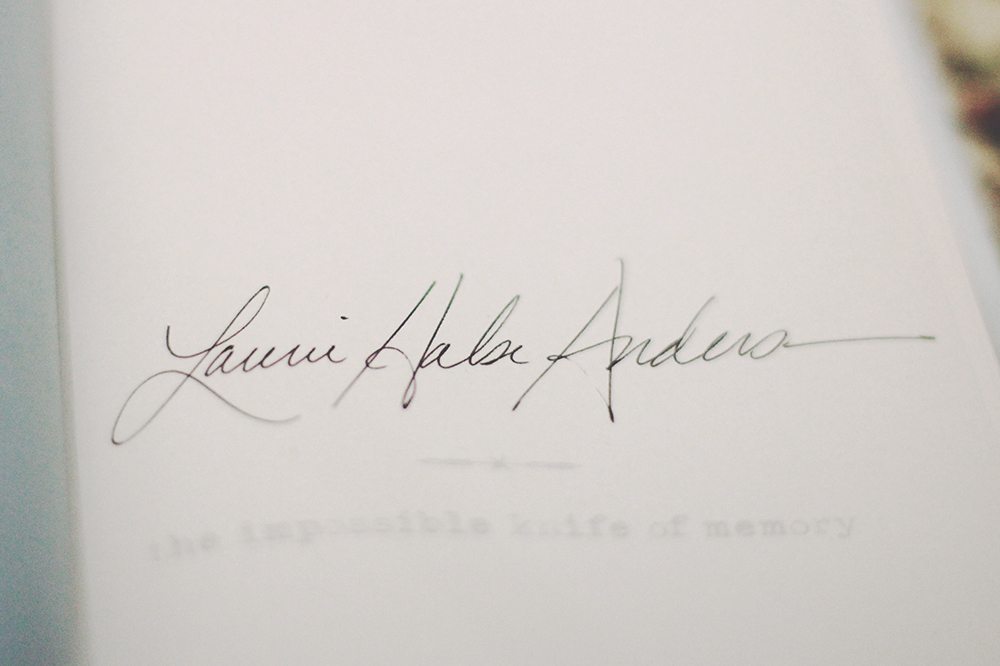 Laurie Halse Anderson
the impossible knife of memory